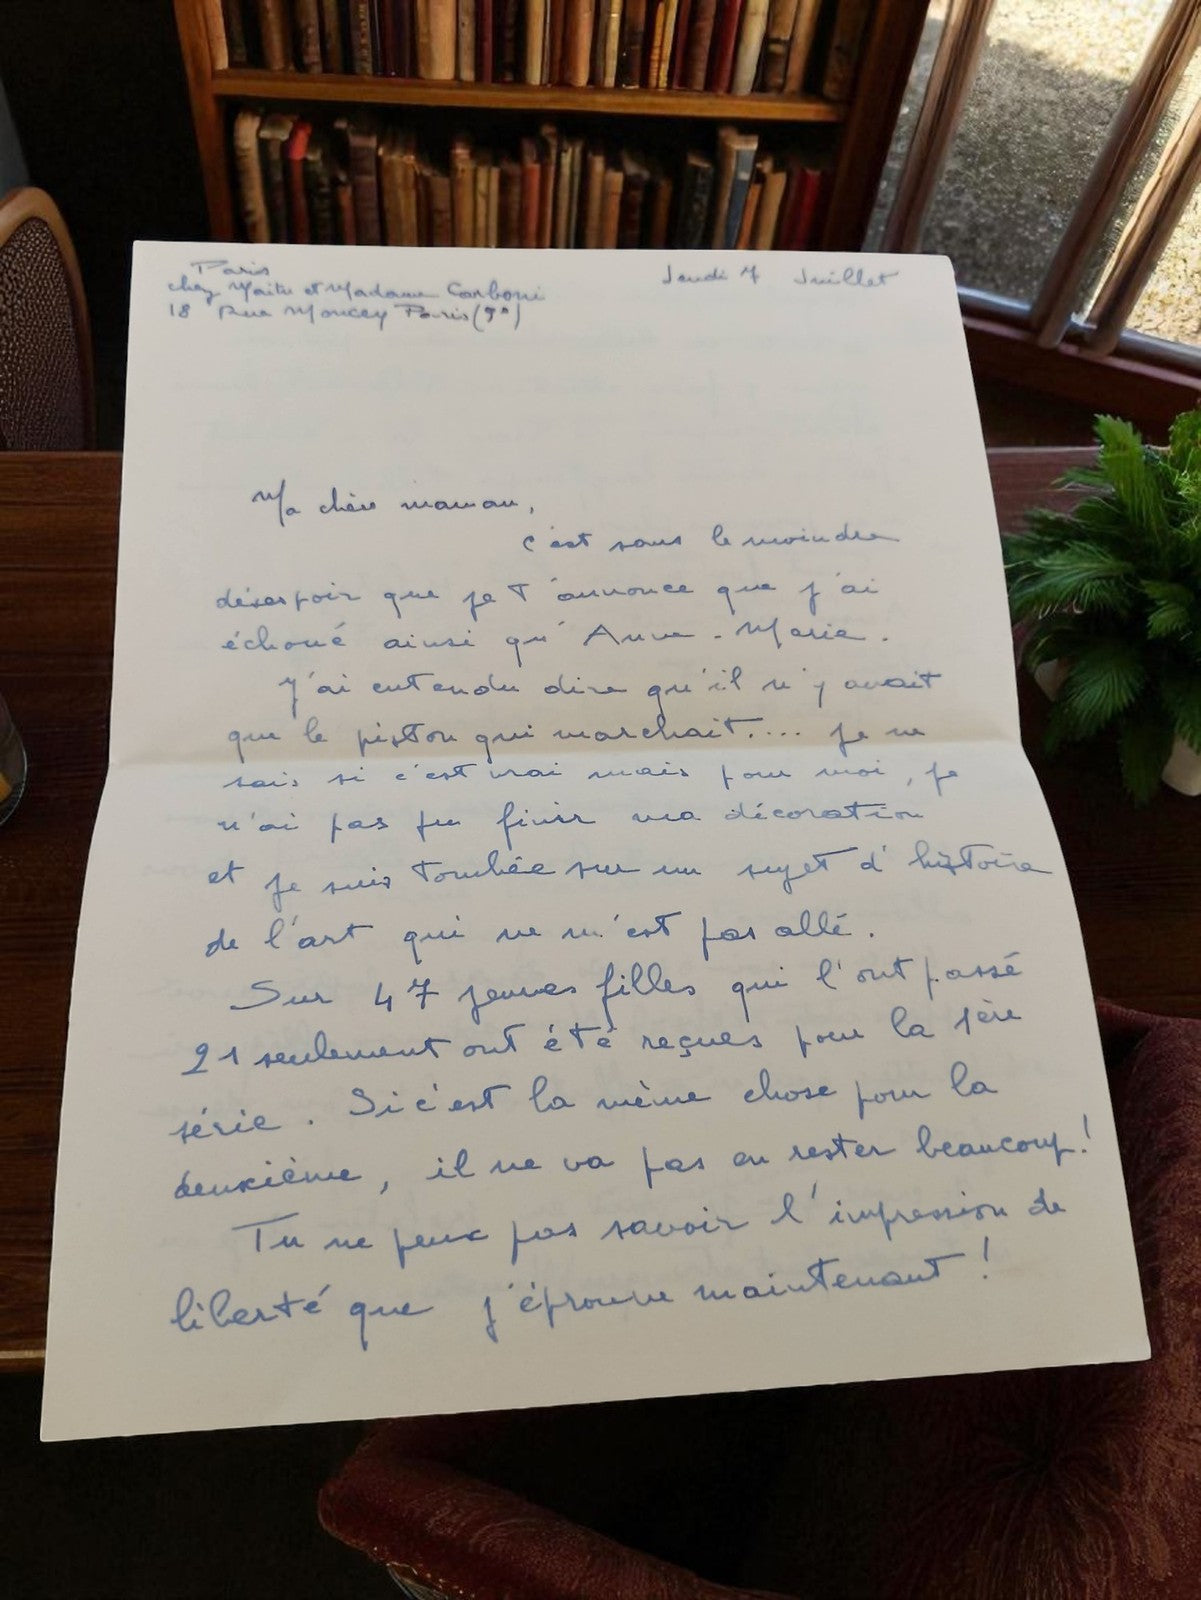 Paris
chez Maître et Madame Carboni
18 Rue Moncey Paris (9e)
Jeudi 7 Juillet
Ma chère maman,
c'est sans le moindre
désespoir que je t'annonce que j'ai
échoué ainsi qu'Anne-Marie.
J'ai entendu dire qu'il n'y avait
que le piston qui marchait.... je ne
sais si c'est vrai mais pour moi, je
n'ai pas pu finir ma décoration
et je suis tombée sur un sujet d'histoire
de l'art qui ne m'est pas allé.
Sur 47 jeunes filles qui l'ont passé
21 seulement ont été reçues pour la 1ère
série. Si c'est la même chose pour la
deuxième, il ne va pas en rester beaucoup!
Tu ne peux pas savoir l'impression de
liberté que j'éprouve maintenant!